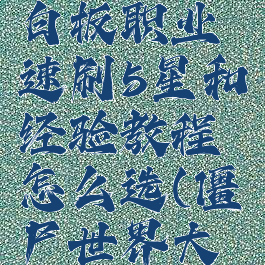 白板职业
速刷5星和
经验教程
怎么选(僵
尸世界大